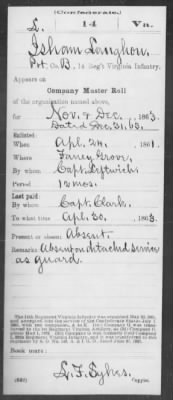 (Confederate.)
L. 14 Va.
Isham Langhon.
Pvt. Co. B, 14 Reg't Virginia Infantry.
Appears on
Company Muster Roll
of the organization named above,
for Nov. & Dec., 1863.
Dated Dec. 31, 63.
Enlisted:
When Apl. 24, 1861.
Where Fancy Grove.
By whom Capt. Leftwich.
Period 12 mos.
Last paid:
By whom Capt. Clark.
To what time Apl. 30, 1863.
Present or absent: Absent.
Remarks: Absent on detached service
as guard.
Book mark:
L. F. Sykes.
(642) Copyist.